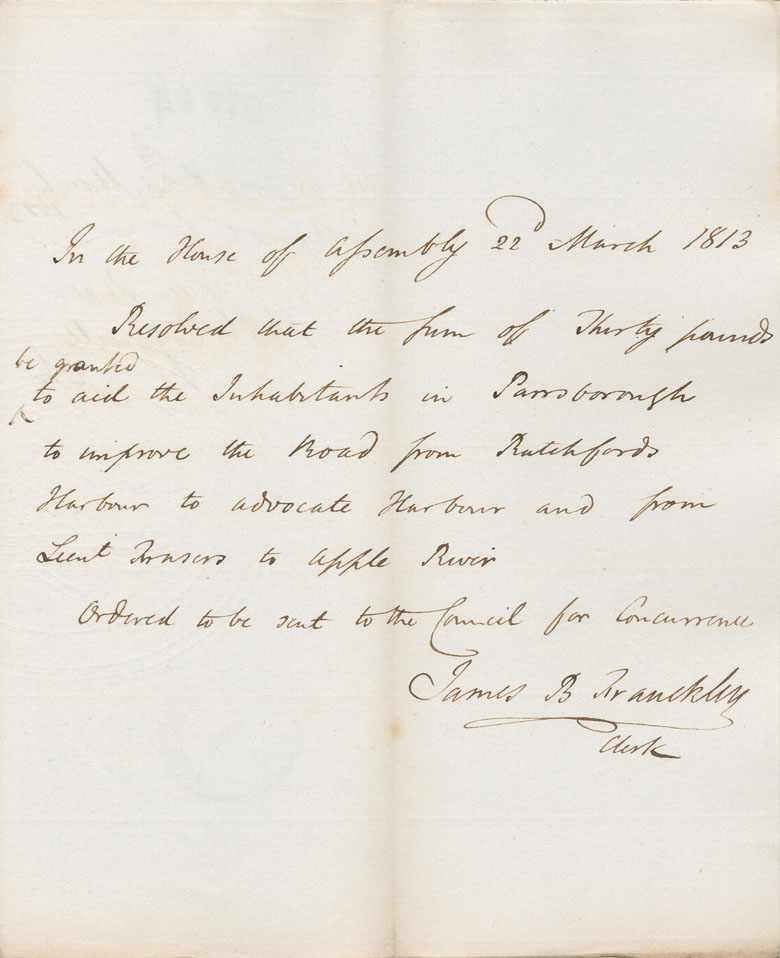 In the House of Assembly 22d March 1813
Resolved that the sum of Thirty pounds
be granted
to aid the Inhabitants in Parrsborough
to improve the Road from Ratchfords
Harbour to advocate Harbour and from
Lieut Frasers to apple River
Ordered to be sent to the Council for Concurrence
James B Franckley
Clerk